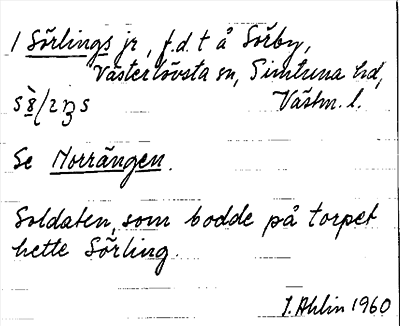 1 Sörlings jr, f.d. t å Sörby,
Västerlövsta sn, Simtuna hd,
Västm. l.
Se Norrängen.
Soldaten, som bodde på torpet
hette Sörling.
J. Ahlin 1960